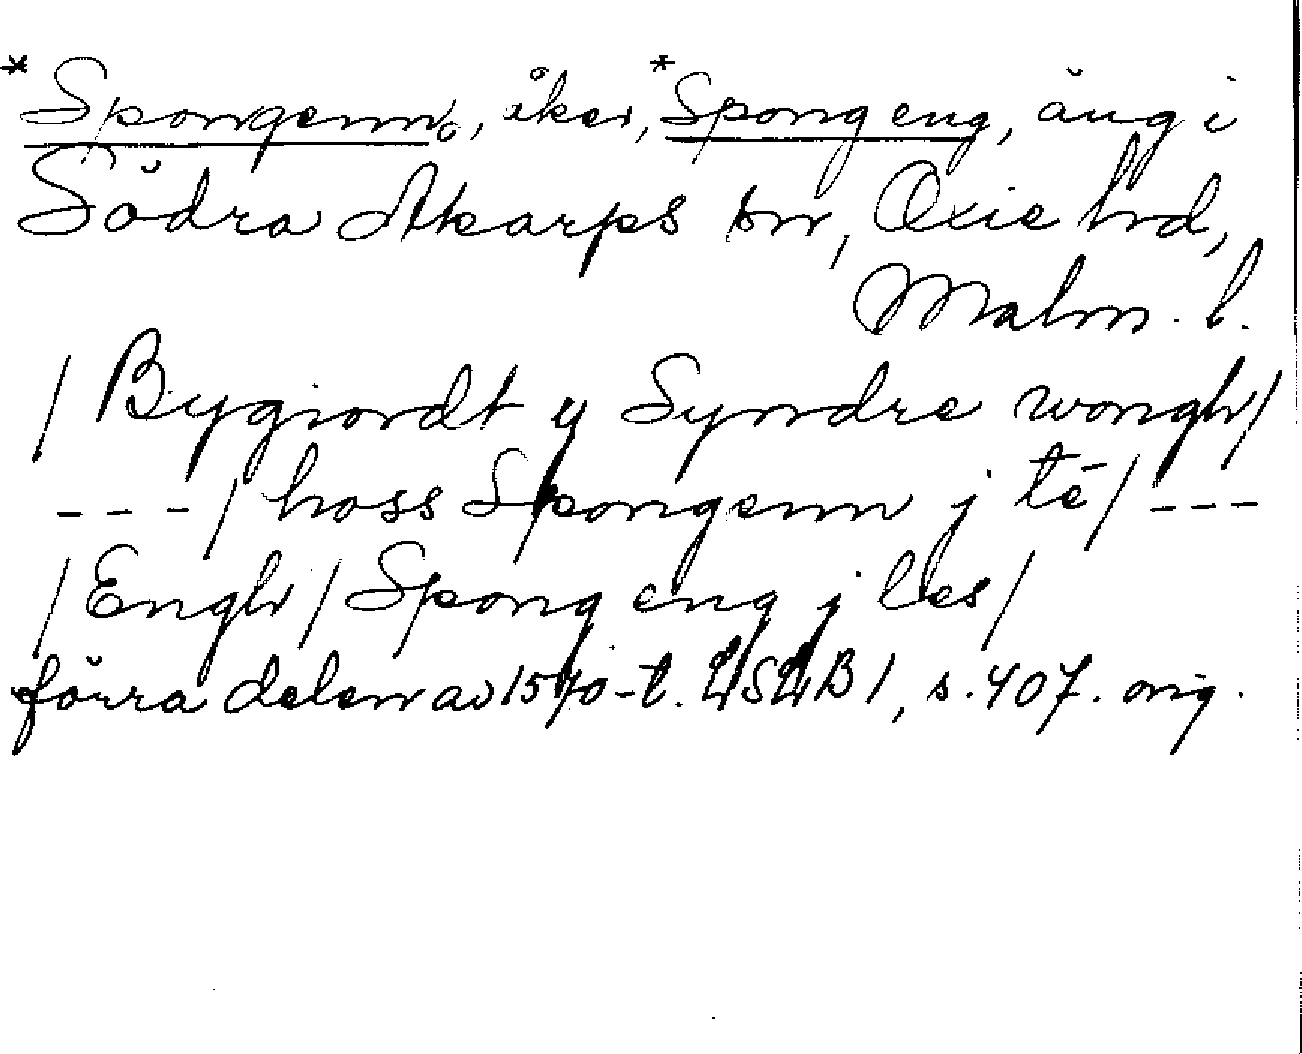 *Spongenn, åker, *Spong eng, äng i
Södra Åkarps sn, Oxie hrd,
Malm. l.
/ Bygiordt y Syndre wongh /
--- / hoss Spongenn j tē / ---
/ Engh / Spong eng j les /
förra delen av 1570-t. LSLB 1, s. 407. orig.